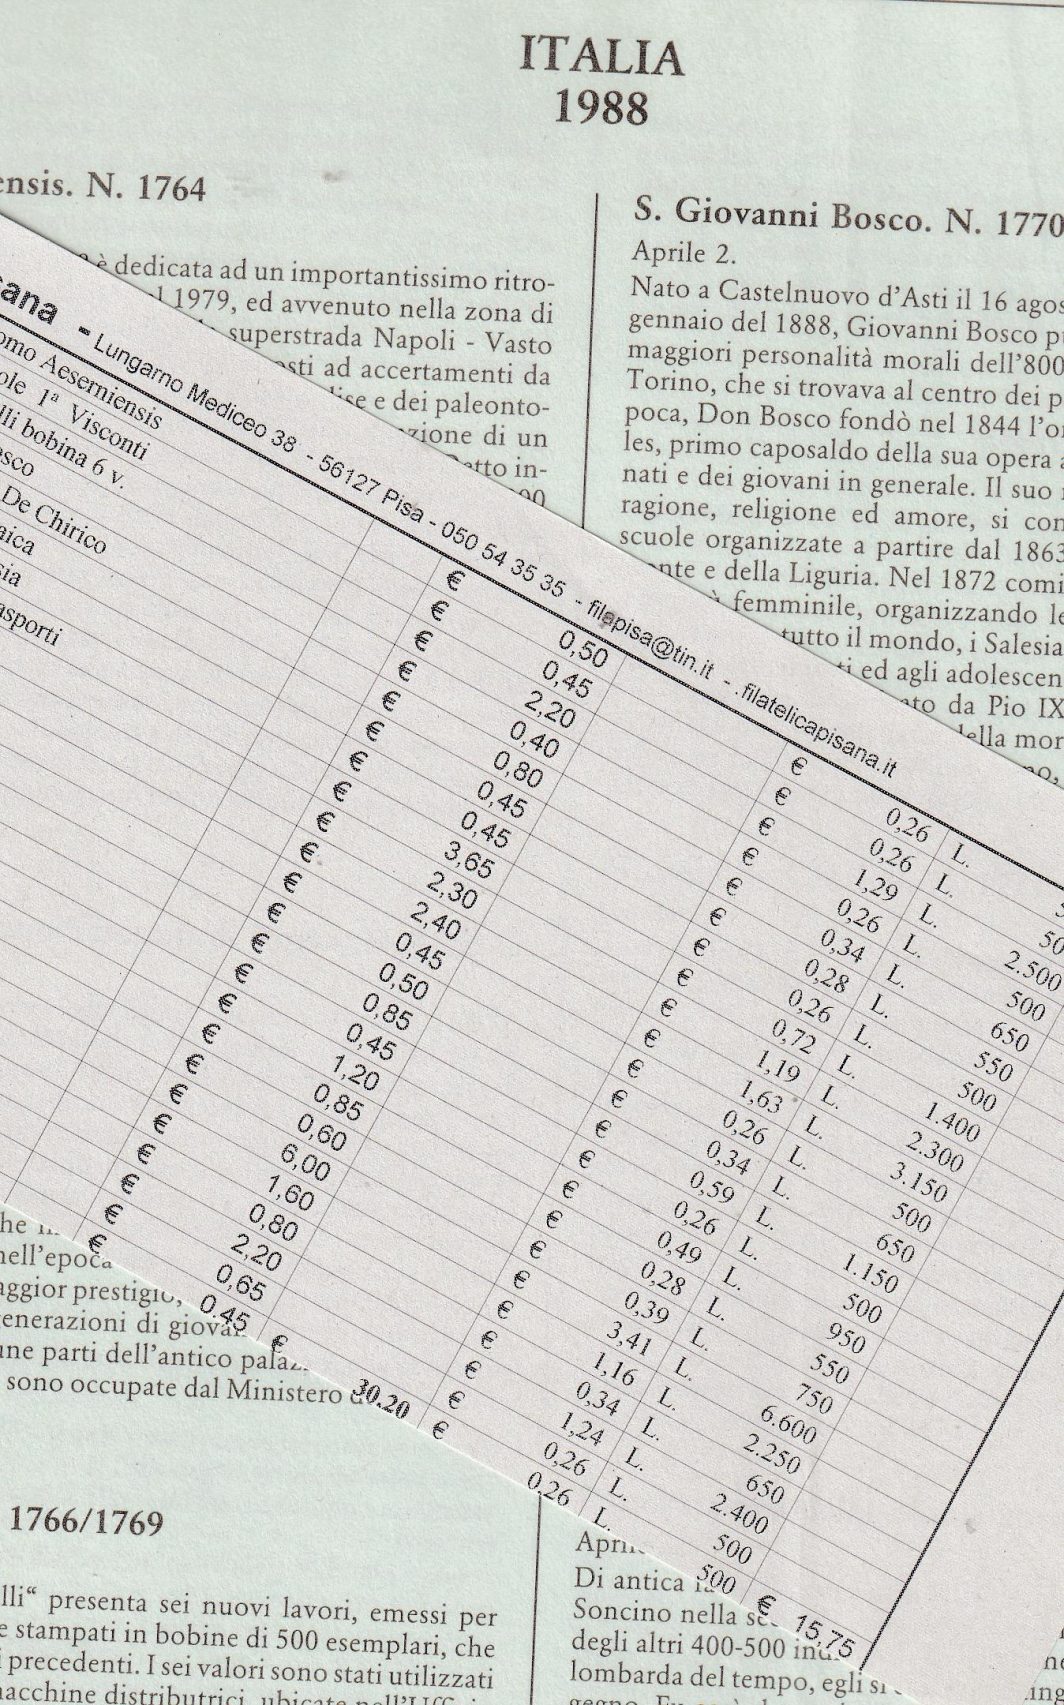 ITALIA
1988
ensis. N. 1764
è dedicata ad un importantissimo ritro-
l 1979, ed avvenuto nella zona di
superstrada Napoli - Vasto
osti ad accertamenti da
lise e dei paleonto-
zione di un
etto in-
00
S. Giovanni Bosco. N. 1770
Aprile 2.
Nato a Castelnuovo d'Asti il 16 agos
gennaio del 1888, Giovanni Bosco p
maggiori personalità morali dell'800
Torino, che si trovava al centro dei p
poca, Don Bosco fondò nel 1844 l'o
les, primo caposaldo della sua opera a
nati e dei giovani in generale. Il suo
ragione, religione ed amore, si con
scuole organizzate a partire dal 1863
onte e della Liguria. Nel 1872 comi
à femminile, organizzando le
tutto il mondo, i Salesia
ti ed agli adolescen
ato da Pio IX
della mor
no,
sana - Lungarno Mediceo 38 - 56127 Pisa - 050 54 35 35 - filapisa@tin.it - .filatelicapisana.it
omo Aeserniensis € 0,50 € 0,26 L. 5
ole 1ª Visconti € 0,45 € 0,26 L. 50
lli bobina 6 v. € 2,20 € 1,29 L. 2.500
osco € 0,40 € 0,26 L. 500
De Chirico € 0,80 € 0,34 L. 650
aica € 0,45 € 0,28 L. 550
sia € 0,45 € 0,26 L. 500
asporti € 3,65 € 0,72 L. 1.400
€ 2,30 € 1,19 L. 2.300
€ 2,40 € 1,63 L. 3.150
€ 0,45 € 0,26 L. 500
€ 0,50 € 0,34 L. 650
€ 0,85 € 0,59 L. 1.150
€ 0,45 € 0,26 L. 500
€ 1,20 € 0,49 L. 950
€ 0,85 € 0,28 L. 550
€ 0,60 € 0,39 L. 750
€ 6,00 € 3,41 L. 6.600
€ 1,60 € 1,16 L. 2.250
€ 0,80 € 0,34 L. 650
€ 2,20 € 1,24 L. 2.400
€ 0,65 € 0,26 L. 500
€ 0.45 € 0.26 L. 500
€ 30.20 € 15,75
nell'epoca
aggior prestigio,
generazioni di giova
une parti dell'antico palaz
sono occupate dal Ministero d
1766/1769
lli" presenta sei nuovi lavori, emessi per
e stampati in bobine di 500 esemplari, che
i precedenti. I sei valori sono stati utilizzati
macchine distributrici, ubicate nell'Uff
Di antica
Soncino nella
degli altri 400-500
lombarda del tempo, egli si